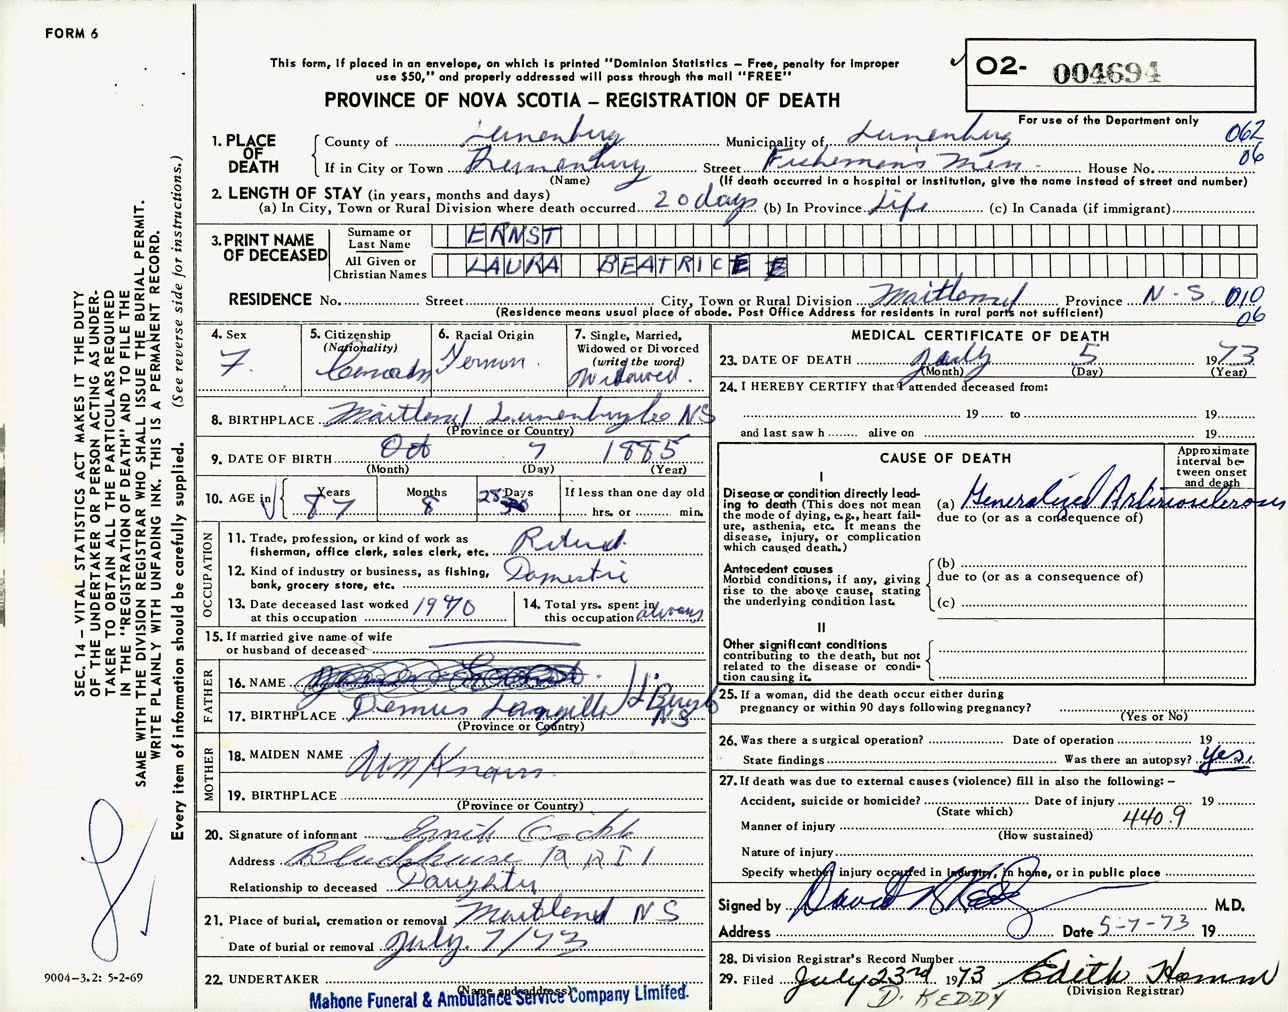 FORM 6
This form, if placed in an envelope, on which is printed "Dominion Statistics – Free, penalty for improper
use $50," and properly addressed will pass through the mail "FREE"
PROVINCE OF NOVA SCOTIA – REGISTRATION OF DEATH
02- 004694
For use of the Department only
062
06
1. PLACE OF DEATH
County of Lunenburg Municipality of Lunenburg
If in City or Town Lunenburg Street Fishermen's Mem. House No.
(Name) (If death occurred in a hospital or institution, give the name instead of street and number)
2. LENGTH OF STAY (in years, months and days)
(a) In City, Town or Rural Division where death occurred 20 days (b) In Province Life (c) In Canada (if immigrant)
3. PRINT NAME OF DECEASED
Surname or Last Name ERNST
All Given or Christian Names LAURA BEATRICE
RESIDENCE No. Street City, Town or Rural Division Maitland Province N.S. 010
(Residence means usual place of abode. Post Office Address for residents in rural parts not sufficient) 06
4. Sex F.
5. Citizenship (Nationality)
6. Racial Origin German.
7. Single, Married, Widowed or Divorced (write the word) Widowed.
8. BIRTHPLACE Maitland Lunenburg Co NS
(Province or Country)
9. DATE OF BIRTH Oct 7 1885
(Month) (Day) (Year)
10. AGE in Years 87 Months 8 Days 28 If less than one day old hrs. or min.
OCCUPATION
11. Trade, profession, or kind of work as fisherman, office clerk, sales clerk, etc. Retired
12. Kind of industry or business, as fishing, bank, grocery store, etc. Domestic
13. Date deceased last worked at this occupation 1970
14. Total yrs. spent in this occupation always
15. If married give name of wife or husband of deceased
FATHER
16. NAME
17. BIRTHPLACE Demus Langille NS
(Province or Country)
MOTHER
18. MAIDEN NAME Unknown
19. BIRTHPLACE
(Province or Country)
20. Signature of informant
Address Blockhouse RR # 1
Relationship to deceased Daughter
21. Place of burial, cremation or removal Maitland NS
Date of burial or removal July 7/73
22. UNDERTAKER
(Name and address)
Mahone Funeral & Ambulance Service Company Limited.
MEDICAL CERTIFICATE OF DEATH
23. DATE OF DEATH July 5 1973
(Month) (Day) (Year)
24. I HEREBY CERTIFY that I attended deceased from:
19 to 19
and last saw h alive on 19
CAUSE OF DEATH
Approximate interval between onset and death
I
Disease or condition directly leading to death (This does not mean the mode of dying, e.g., heart failure, asthenia, etc. It means the disease, injury, or complication which caused death.)
(a) Generalized Arteriosclerosis
due to (or as a consequence of)
Antecedent causes
Morbid conditions, if any, giving rise to the above cause, stating the underlying condition last.
(b)
due to (or as a consequence of)
(c)
II
Other significant conditions contributing to the death, but not related to the disease or condition causing it.
25. If a woman, did the death occur either during pregnancy or within 90 days following pregnancy?
(Yes or No)
26. Was there a surgical operation? Date of operation 19
State findings Was there an autopsy? Yes.
27. If death was due to external causes (violence) fill in also the following: –
Accident, suicide or homicide? Date of injury 19
(State which) 440.9
Manner of injury
(How sustained)
Nature of injury
Specify whether injury occurred in industry, in home, or in public place
Signed by M.D.
Address Date 5-7-73 19
28. Division Registrar's Record Number
29. Filed July 23rd 1973 Edith
(Division Registrar)
D. KEDDY
SEC. 14 – VITAL STATISTICS ACT MAKES IT THE DUTY
OF THE UNDERTAKER OR PERSON ACTING AS UNDER-
TAKER TO OBTAIN ALL THE PARTICULARS REQUIRED
IN THE "REGISTRATION OF DEATH" AND TO FILE THE
SAME WITH THE DIVISION REGISTRAR WHO SHALL ISSUE THE BURIAL PERMIT.
WRITE PLAINLY WITH UNFADING INK. THIS IS A PERMANENT RECORD.
Every item of information should be carefully supplied. (See reverse side for instructions.)
9004-3.2: 5-2-69